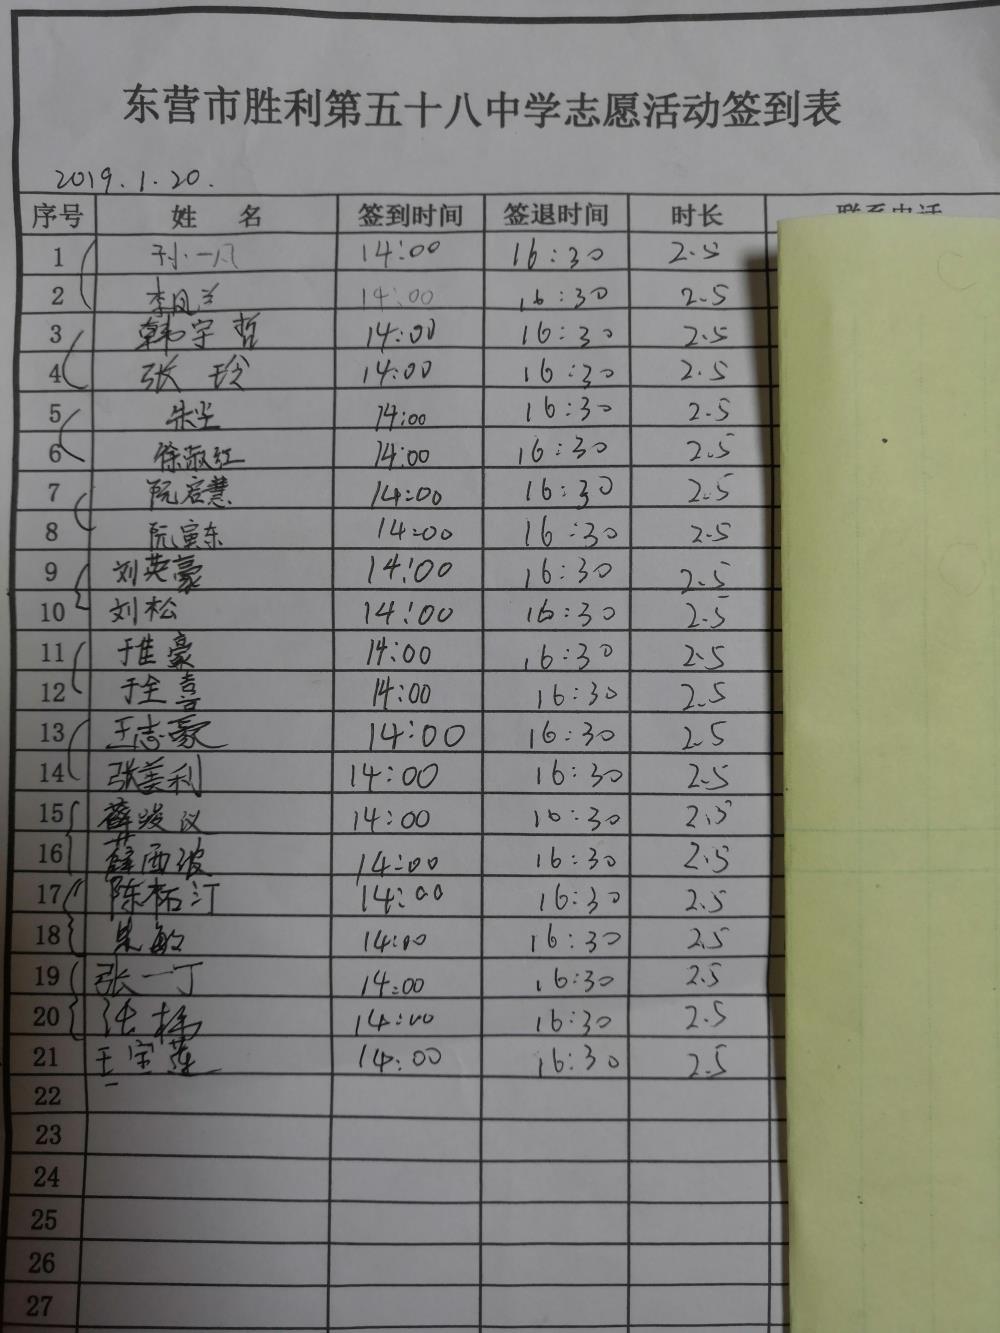 东营市胜利第五十八中学志愿活动签到表
2019.1.20.
序号 姓 名 签到时间 签退时间 时长 联系电话
1 孙一凡 14:00 16:30 2.5
2 李凤兰 14:00 16:30 2.5
3 韩宇哲 14:00 16:30 2.5
4 张玲 14:00 16:30 2.5
5 14:00 16:30 2.5
6 徐淑红 14:00 16:30 2.5
7 阮启慧 14:00 16:30 2.5
8 阮寅东 14:00 16:30 2.5
9 刘英豪 14:00 16:30 2.5
10 刘松 14:00 16:30 2.5
11 于佳豪 14:00 16:30 2.5
12 于全喜 14:00 16:30 2.5
13 王志豪 14:00 16:30 2.5
14 张美利 14:00 16:30 2.5
15 薛峻议 14:00 16:30 2.5
16 薛西波 14:00 16:30 2.5
17 陈柘汀 14:00 16:30 2.5
18 14:00 16:30 2.5
19 张一丁 14:00 16:30 2.5
20 14:00 16:30 2.5
21 王宝莲 14:00 16:30 2.5
22
23
24
25
26
27